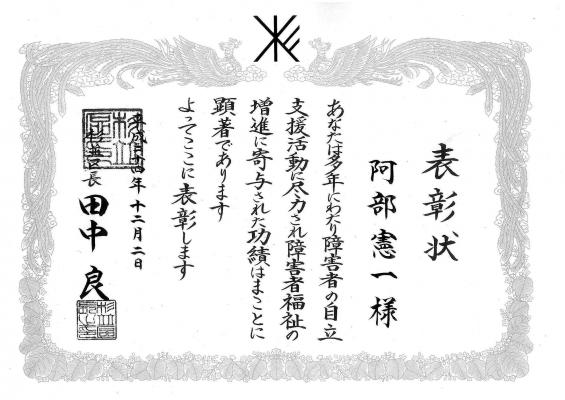 表彰状
阿部憲一様
あなたは多年にわたり障害者の自立
支援活動に尽力され障害者福祉の
増進に寄与された功績はまことに
顕著であります
よってここに表彰します
平成二十四年十二月二日
杉並区長
田中良